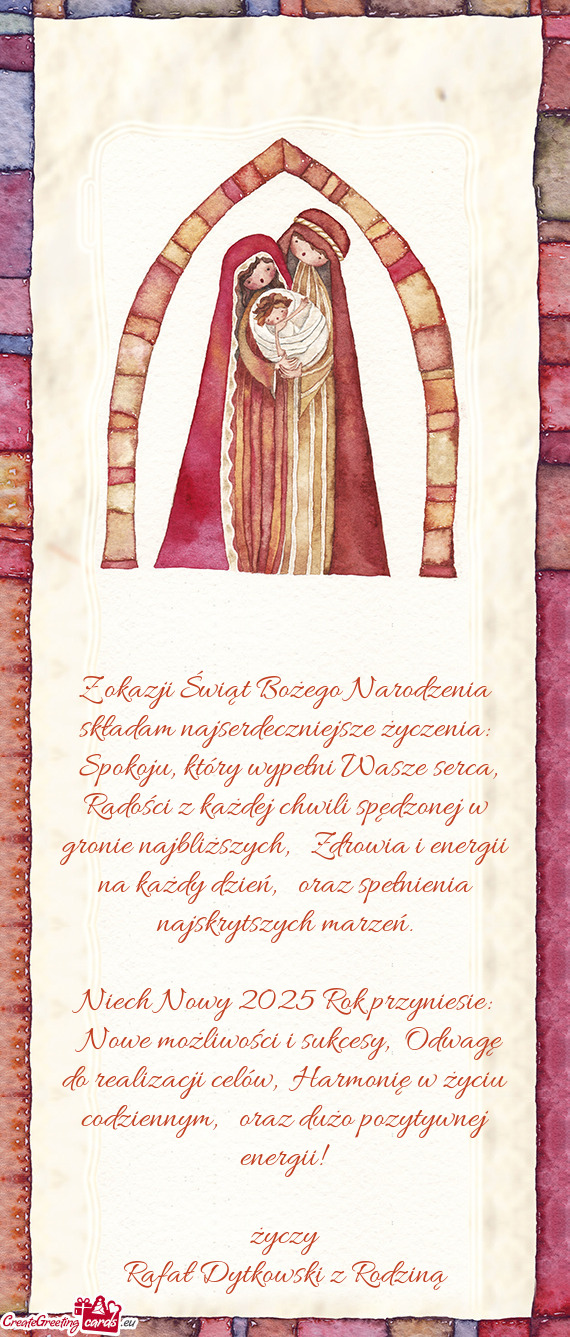 Z okazji Świąt Bożego Narodzenia
składam najserdeczniejsze życzenia:
Spokoju, który wypełni Wasze serca,
Radości z każdej chwili spędzonej w
gronie najbliższych, Zdrowia i energii
na każdy dzień, oraz spełnienia
najskrytszych marzeń.
Niech Nowy 2025 Rok przyniesie:
Nowe możliwości i sukcesy, Odwagę
do realizacji celów, Harmonię w życiu
codziennym, oraz dużo pozytywnej
energii!
życzy
Rafał Dytkowski z Rodziną
CreateGreeting cards .eu